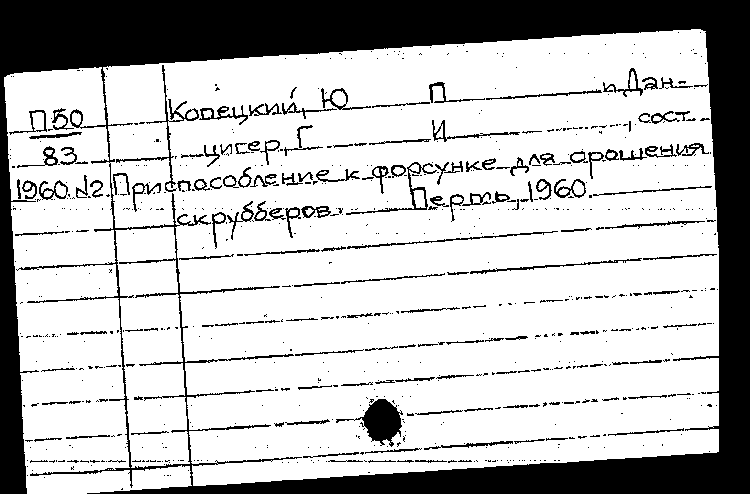 П50 Копецкий, Ю П и Дан-
83 цигер, Г И , сост.
1960.N2. Приспособление к форсунке для орошения
скрубберов. Пермь, 1960.